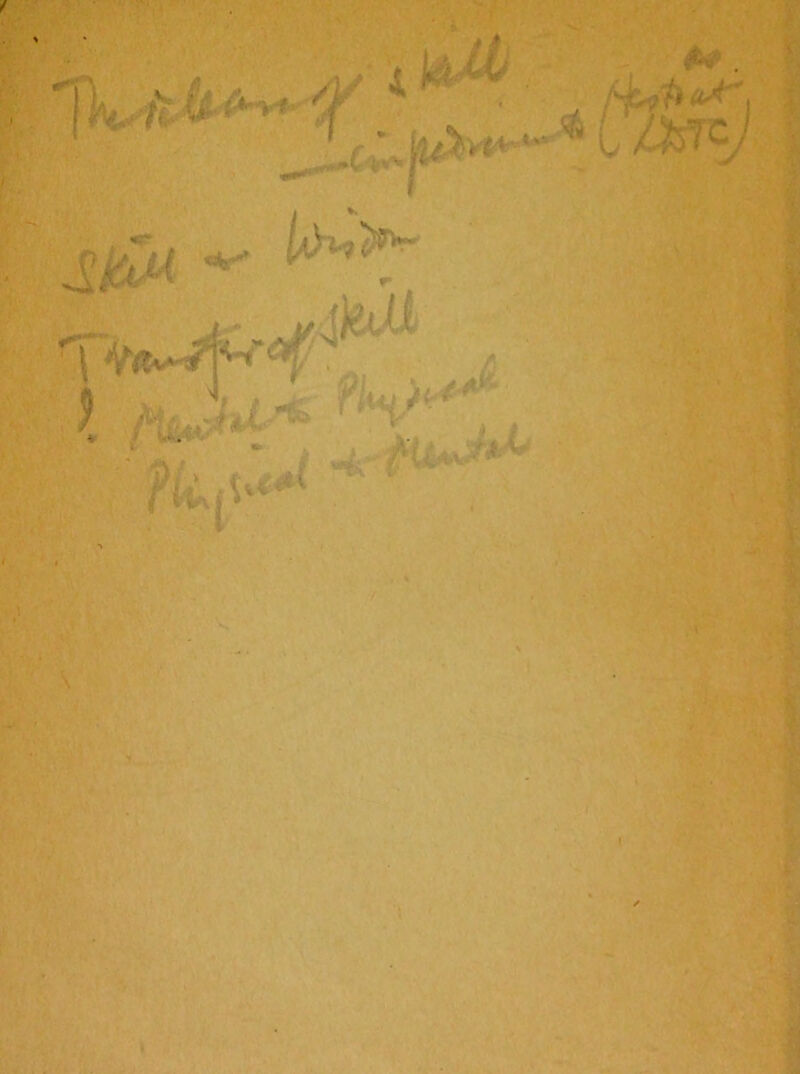 The release of skill
— impediments (
Skill & Wisdom
Transfer of Skill
? Mental to Physical
Physical to Mental